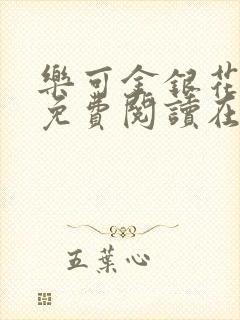 樂可金銀花
免費閱讀在
五葉心